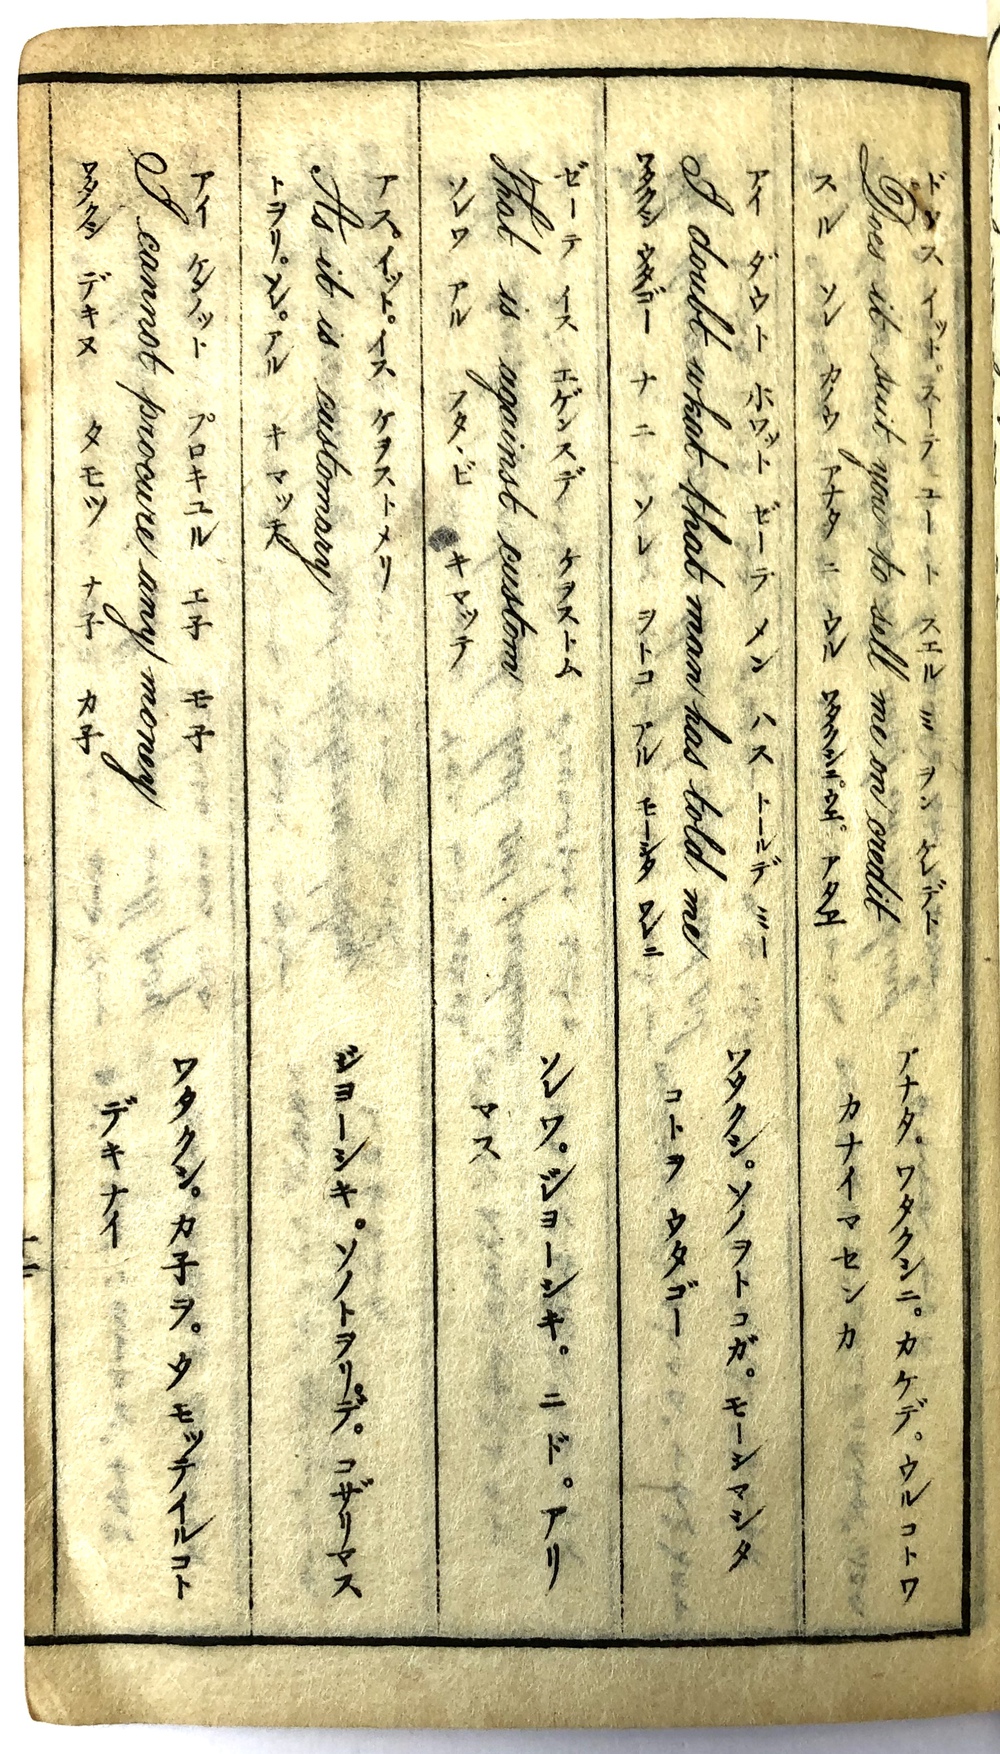 ドッス イット。スーテ ユー ト スエル ミ ヲン ケレデト
Does it suit you to sell me on credit
スル ソレ カノウ アナタ ニ ウル ワタクシニ。ウエ。アタエ
アナタ。ワタクシニ。カケデ。ウルコトワ
カナイマセンカ
アイ ダウト ホワット ゼーテ メン ハス トールデ ミー
I doubt what that man has told me
ワタクシ ウタゴー ナニ ソレ ヲトコ アル モーシタ ワレニ
ワタクシ。ソノヲトコガ。モーシマシタ
コトヲ ウタゴー
ゼーテ イス エゲンスデ ケヲストム
That is against custom
ソレワ アル フタヽビ キマッテ
ソレワ。ジヨーシキ。ニド。アリ
マス
アス。イット。イス ケヲストメリ
As it is customary
トヲリ。ソレ。アル キマッ天
ジヨーシキ。ソノトヲリ。デ。コザリマス
アイ ケンノット プロキユル エ子 モ子
I cannot procure any money
ワタクシ デキヌ タモツ ナ子 カ子
ワタクシ。カ子ヲ。タモッテイルコト
デキナイ